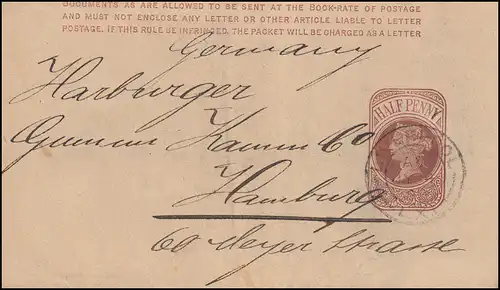 DOCUMENTS AS ARE ALLOWED TO BE SENT AT THE BOOK-RATE OF POSTAGE
AND MUST NOT ENCLOSE ANY LETTER OR OTHER ARTICLE LIABLE TO LETTER
POSTAGE. IF THIS RULE BE INFRINGED, THE PACKET WILL BE CHARGED AS A LETTER
Germany
Harburger
HALF PENNY
Gummi Kamm Co
Hamburg
60 Meyer Strasse